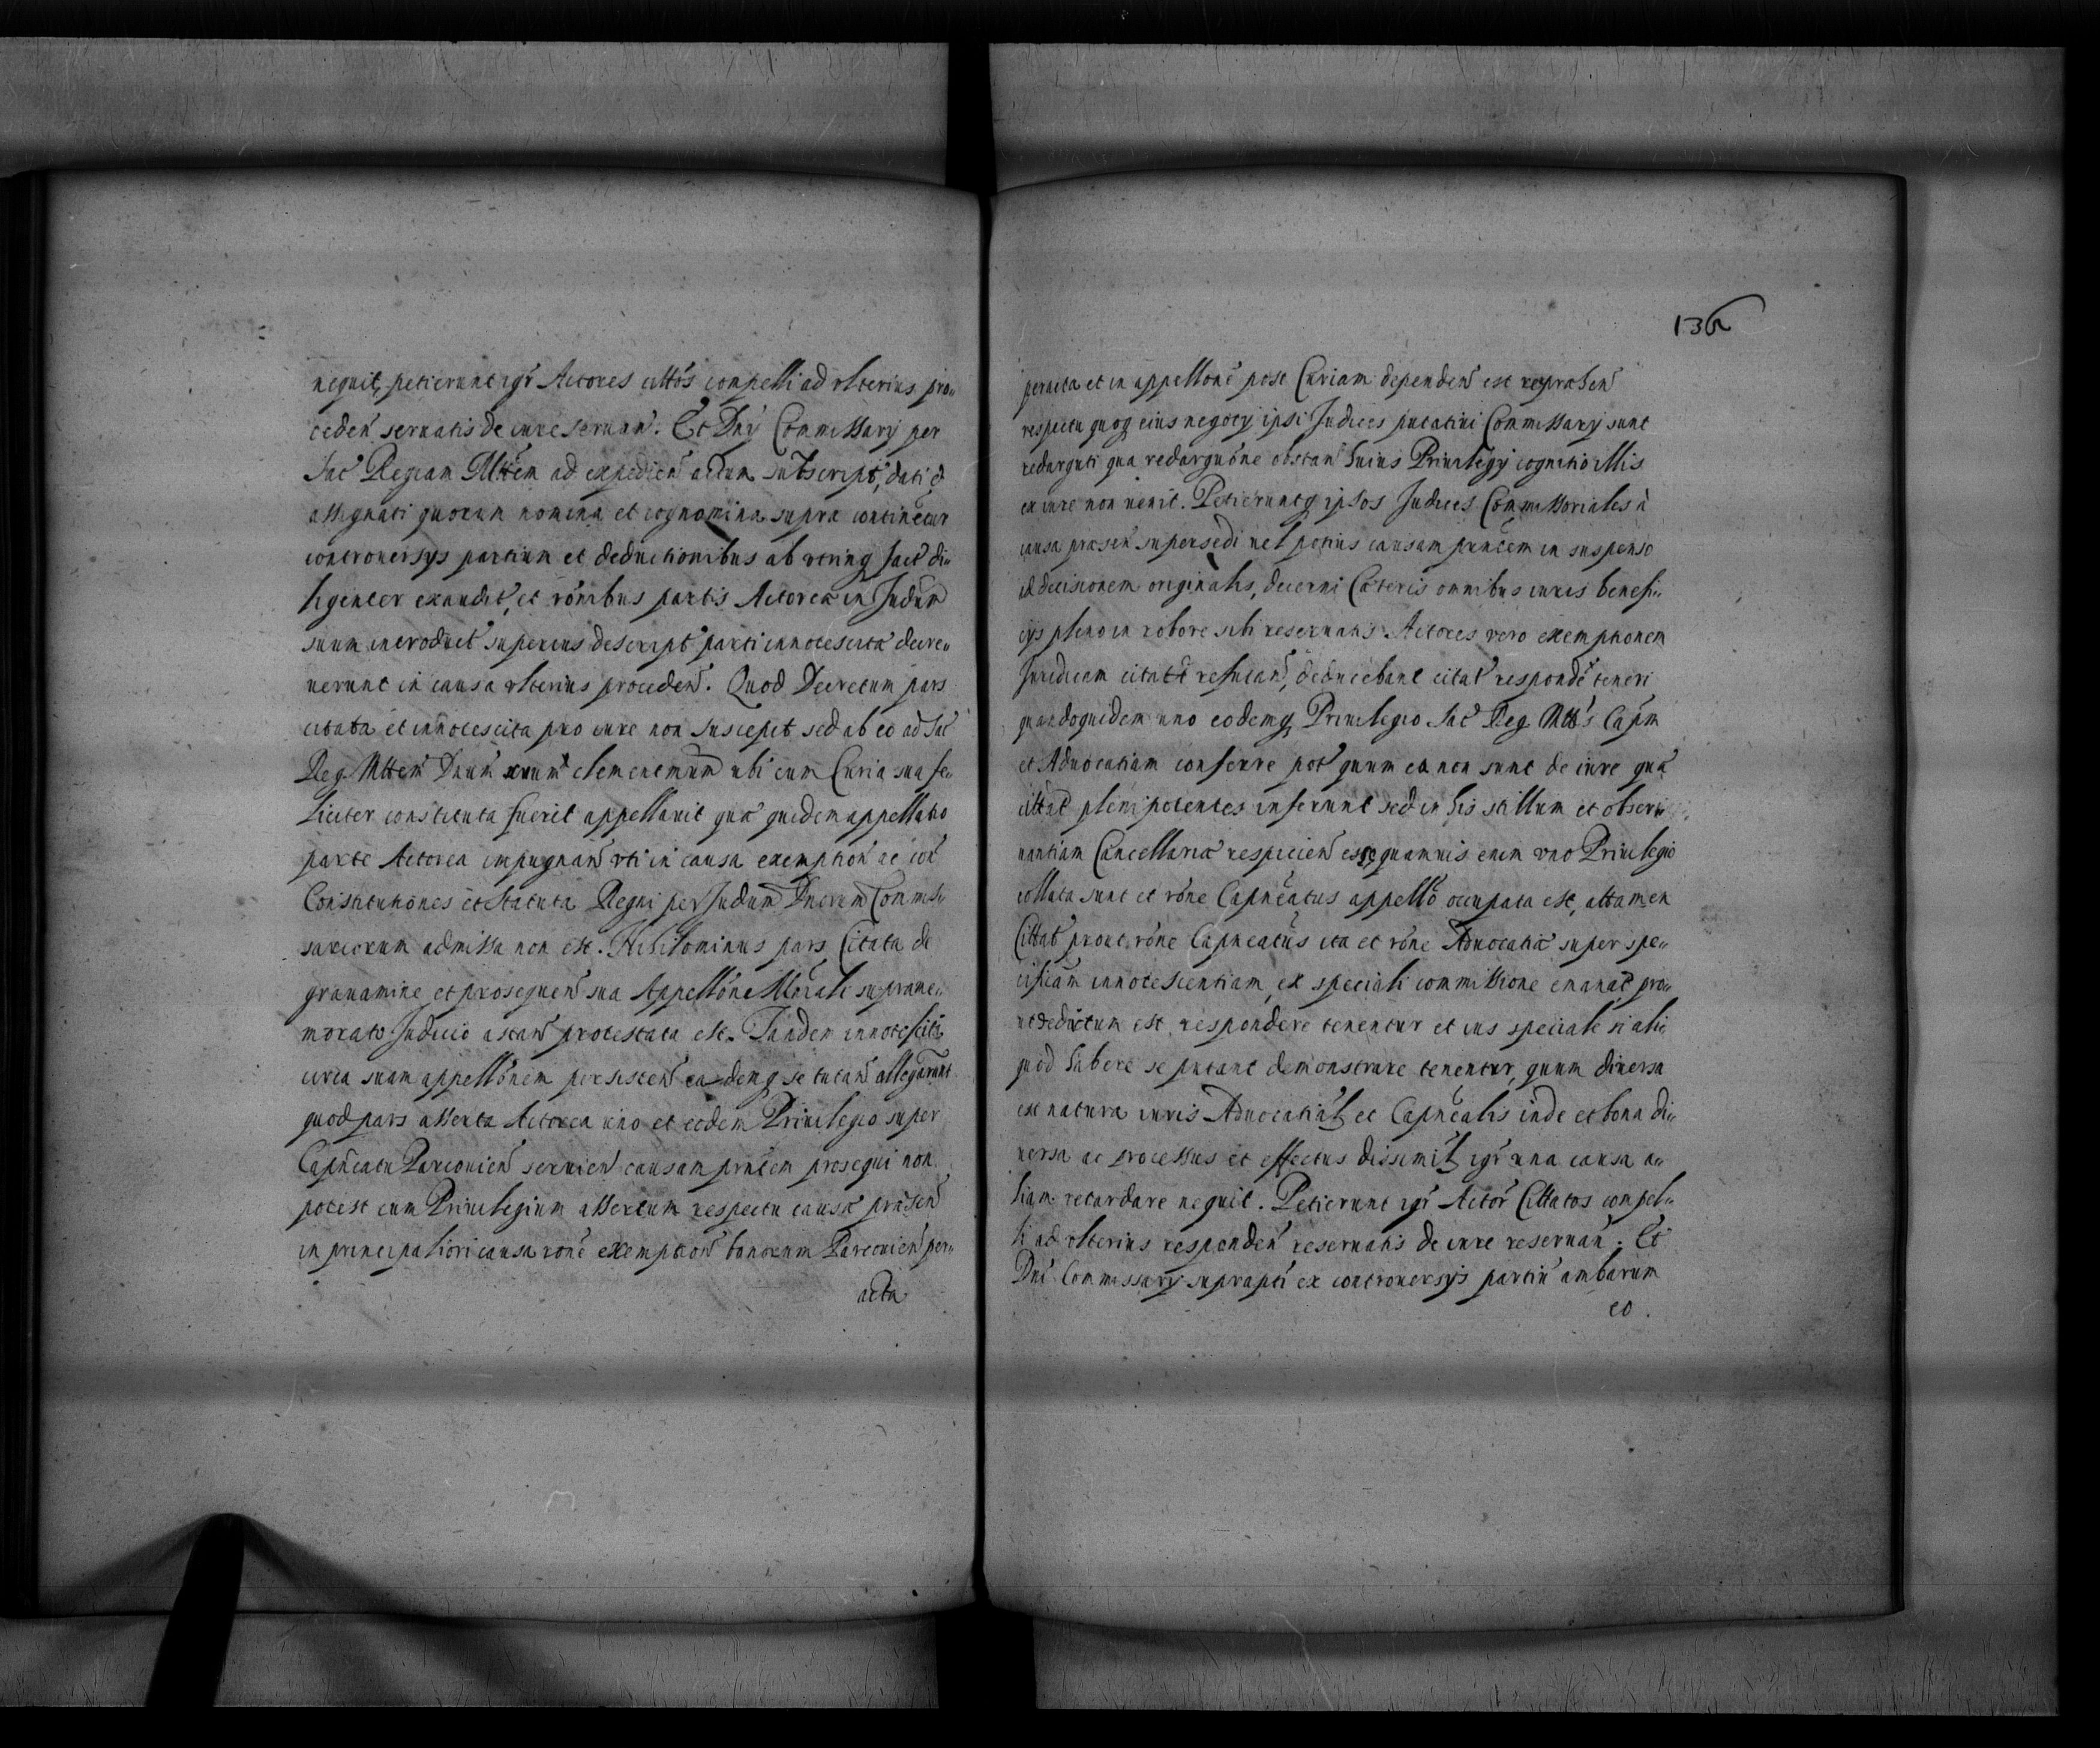 nequit, petierunt igr Actores cittos compelli ad vlterius pro„
ceden seruatis de iure seruan. Et Dni Commissarij per
Sac Regiam Mttem ad expedien actum subscript, dati et
assignati quorum nomina et cognomina supra continetur
controuersijs partium et deductionibus ab vtrinq fact di„
ligenter exaudit, et ronibus partis Actorea in Judum
suum introduct superius descript parti innotescita decre„
uerunt in causa vlterius proceden. Quod Decretum pars
citata et innotescita pro iure non suscepit sed ab eo ad Sac
Reg Mttem Dnum suum clementmum ubi cum Curia sua fe„
liciter constituta fuerit appellauit qua quidem appellatio
parte Actorea impugnan vti in causa exemption ac con
Constitutiones et Statuta Regni per Judum Dnorum Commis„
sariorum admissa non est. Nihilominus pars Citata de
grauamine et prosequen sua Appellone Morali suprame„
morato Judicio astan protestata est. Tandem innotescita
circa suam appellonem persisten eademq se tutan allegarunt
quod pars asserta Actorea uno et eodem Priuilegio super
Capneatu Parcouien seruien causam prntem prosequi non
potest cum Priuilegium assertum respectu causæ præsen
in principaliori causa rone exemption bonorum Parcouien per„
acta
136
peracta et in appellone post Curiam dependen est repræhen
respectu quoq eius negocij ipsi Judices putatiui Commissarij sunt
redarguti qua redarguone obstan huius Priuilegij cognitio illis
ex iure non uenit. Petieruntq ipsos Judices Commissoriales à
causa præsen supersedi uel potius causam prntem in suspenso
ad decisionem originalis, decerni Cæteris omnibus iuris benefi„
cijs pleno in robore sibi reseruatis. Actores vero exemptionem
Juridicam citat refutan, deducebant citat responde teneri
quandoquidem uno eodemq Priuilegio Sac Reg Mttis Capm
et Aduocatiam conferre pot quum ea non sunt de iure qua
cittat plenipotentes inferunt sed in his stillum et obser„
uantiam Cancellariæ respicien esse quamuis enim vno Priuilegio
collata sunt et rone Capneatus appello occupata est, attamen
Cittat prout rone Capneatus ita et rone Aduocatiæ super spe„
cificam innotescentiam, ex speciali commissione emanat pro„
ut deductum est respondere tenentur et ius speciale si ali„
quod habere se putant demonstrare tenentur, quum diuersa
est natura iuris Aduocatial et Capnealis inde et bona di„
uersa ac processus et effectus dissimil igr una causa a„
liam retardare nequit. Petierunt igr Actor Cittatos compel„
li ad vlterius responden reseruatis de iure reseruan. Et
Dni Commissarij suprapti ex controuersijs partiu ambarum
eo.